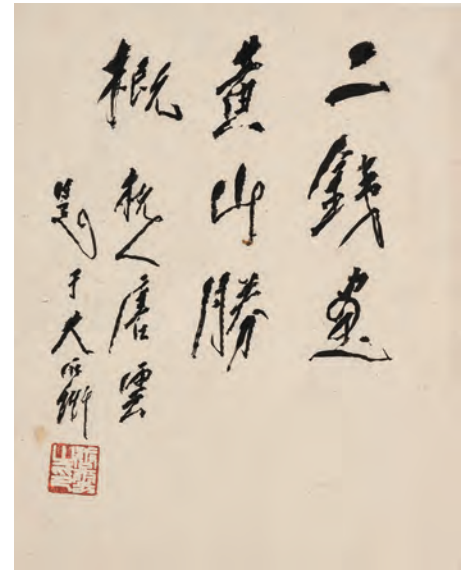 二錢畫
黃山勝
概 杭人唐雲
題于大石齋